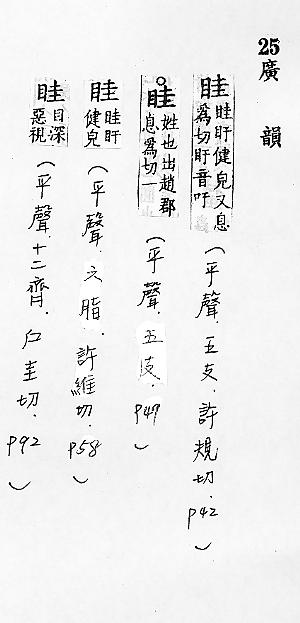 25廣韻
眭 眭盱健皃又息爲切盱音吁 (平聲．五支．許規切．P42)
○眭 姓也出趙郡息爲切一 (平聲．五支．P47)
眭 眭盱健皃 (平聲．六脂．許維切．P58)
眭 目深惡視 (平聲．十二齊．戶圭切．P92)